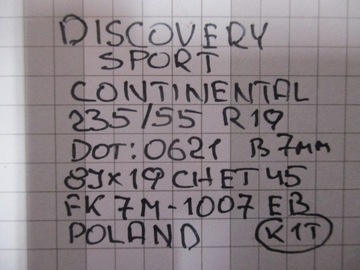 DISCOVERY
SPORT
CONTINENTAL
235/55 R19
DOT:0621 B 7mm
8Jx19 CH ET 45
FK 7M-1007 EB
POLAND K1T